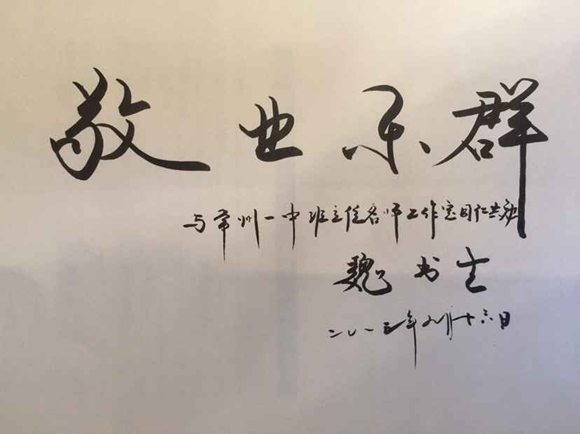 敬业乐群
与常州一中班主任名师工作室同仁共勉
魏书生
二〇一五年九月十六日